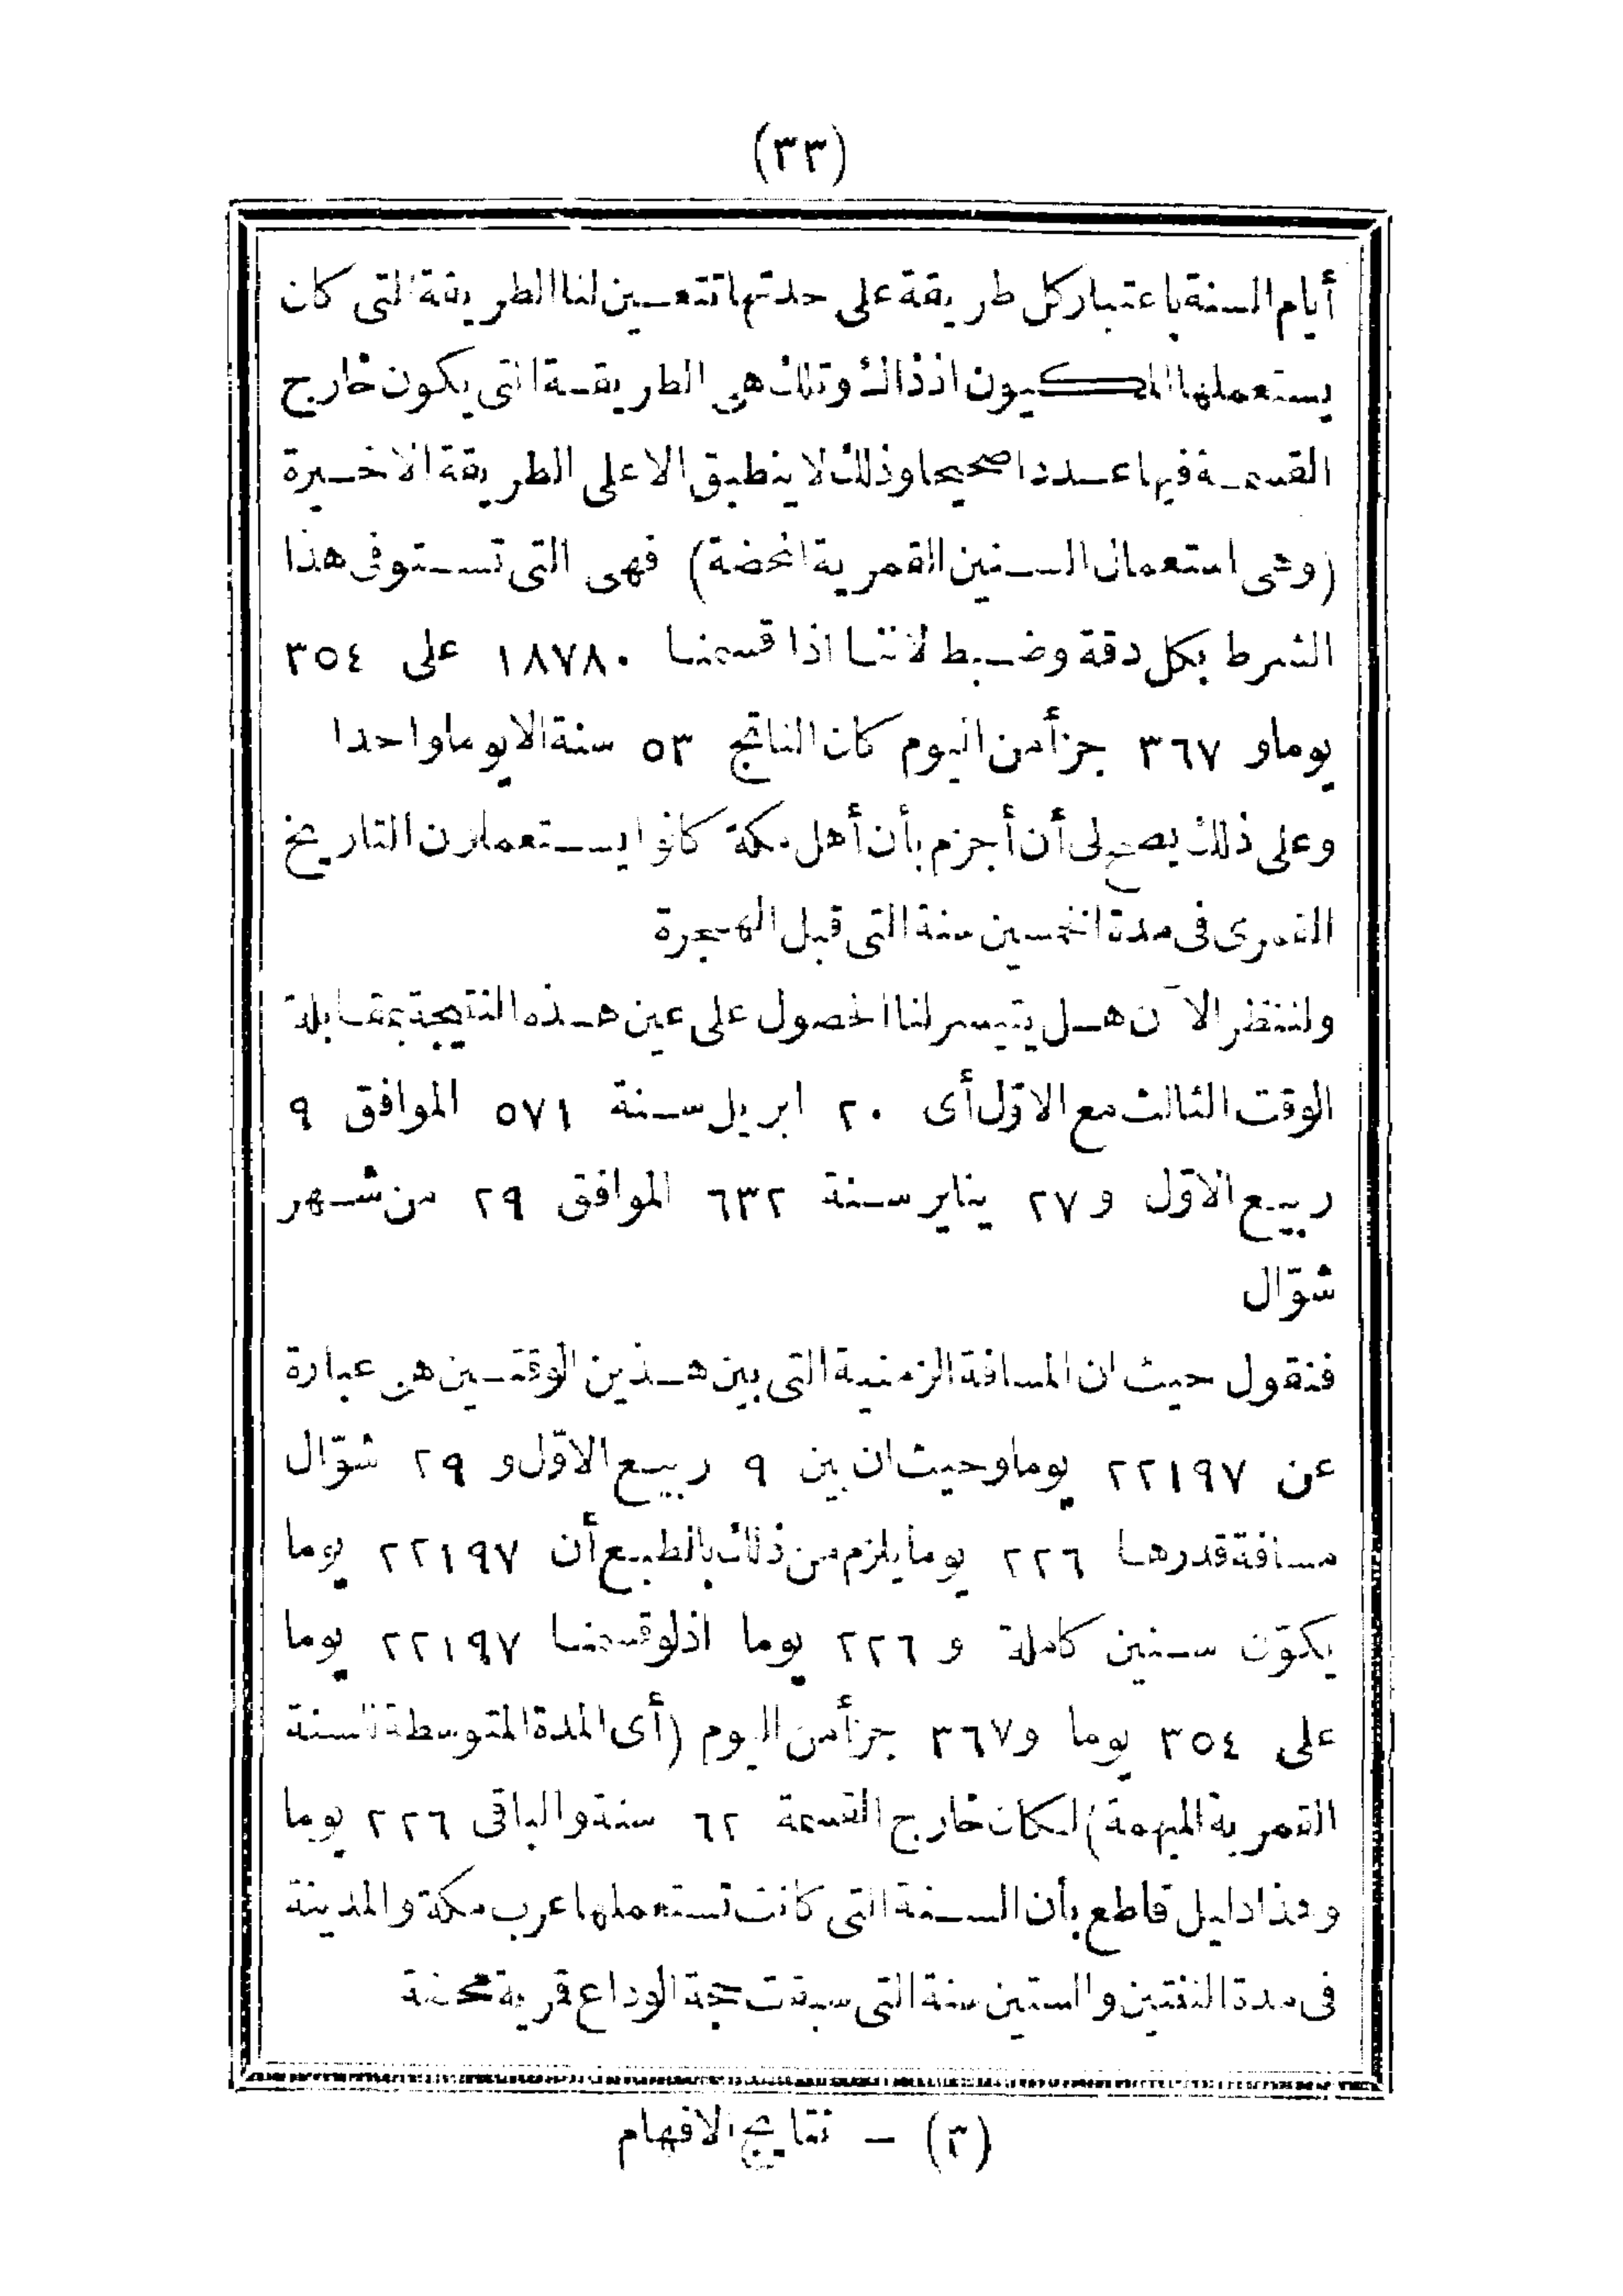 (٣٣)
أيام السنة باعتبار كل طريقة على حدتها تتعين لنا الطريقة التى كان
يستعملها المكيون اذ ذاك وتلك هى الطريقة التى يكون خارج
القسمة فيها عددا صحيحا وذلك لا ينطبق الا على الطريقة الاخيرة
(وهى استعمال السنين القمرية المحضة) فهى التى تستوفى هذا
الشرط بكل دقة وضبط لاننا اذا قسمنا ١٨٧٨٠ على ٣٥٤
يوما و ٣٦٧ جزأ من اليوم كان الناتج ٥٣ سنة الا يوما واحدا
وعلى ذلك يصح لى أن أجزم بأن أهل مكة كانوا يستعملون التاريخ
القمرى فى مدة الخمسين سنة التى قبل الهجرة
ولننظر الآن هل يتيسر لنا الحصول على عين هذه النتيجة بمقابلة
الوقت الثالث مع الاوّل أى ٢٠ ابريل سنة ٥٧١ الموافق ٩
ربيع الاوّل و ٢٧ يناير سنة ٦٣٢ الموافق ٢٩ من شهر
شوّال
فنقول حيث ان المسافة الزمنية التى بين هذين الوقتين هى عبارة
عن ٢٢١٩٧ يوما وحيث ان بين ٩ ربيع الاوّل و ٢٩ شوّال
مسافة قدرها ٢٢٦ يوما يلزم من ذلك بالطبع أن ٢٢١٩٧ يوما
يكوّن سنين كاملة و ٢٢٦ يوما اذ لو قسمنا ٢٢١٩٧ يوما
على ٣٥٤ يوما و٣٦٧ جزأ من اليوم (أى المدة المتوسطة للسنة
القمرية المبهمة) لكان خارج القسمة ٦٢ سنة والباقى ٢٢٦ يوما
وهذا دليل قاطع بأن السنة التى كانت تستعملها عرب مكة والمدينة
فى مدة الثنتين والستين سنة التى سبقت حجة الوداع قمرية محضة
(٣) – نتايج الافهام